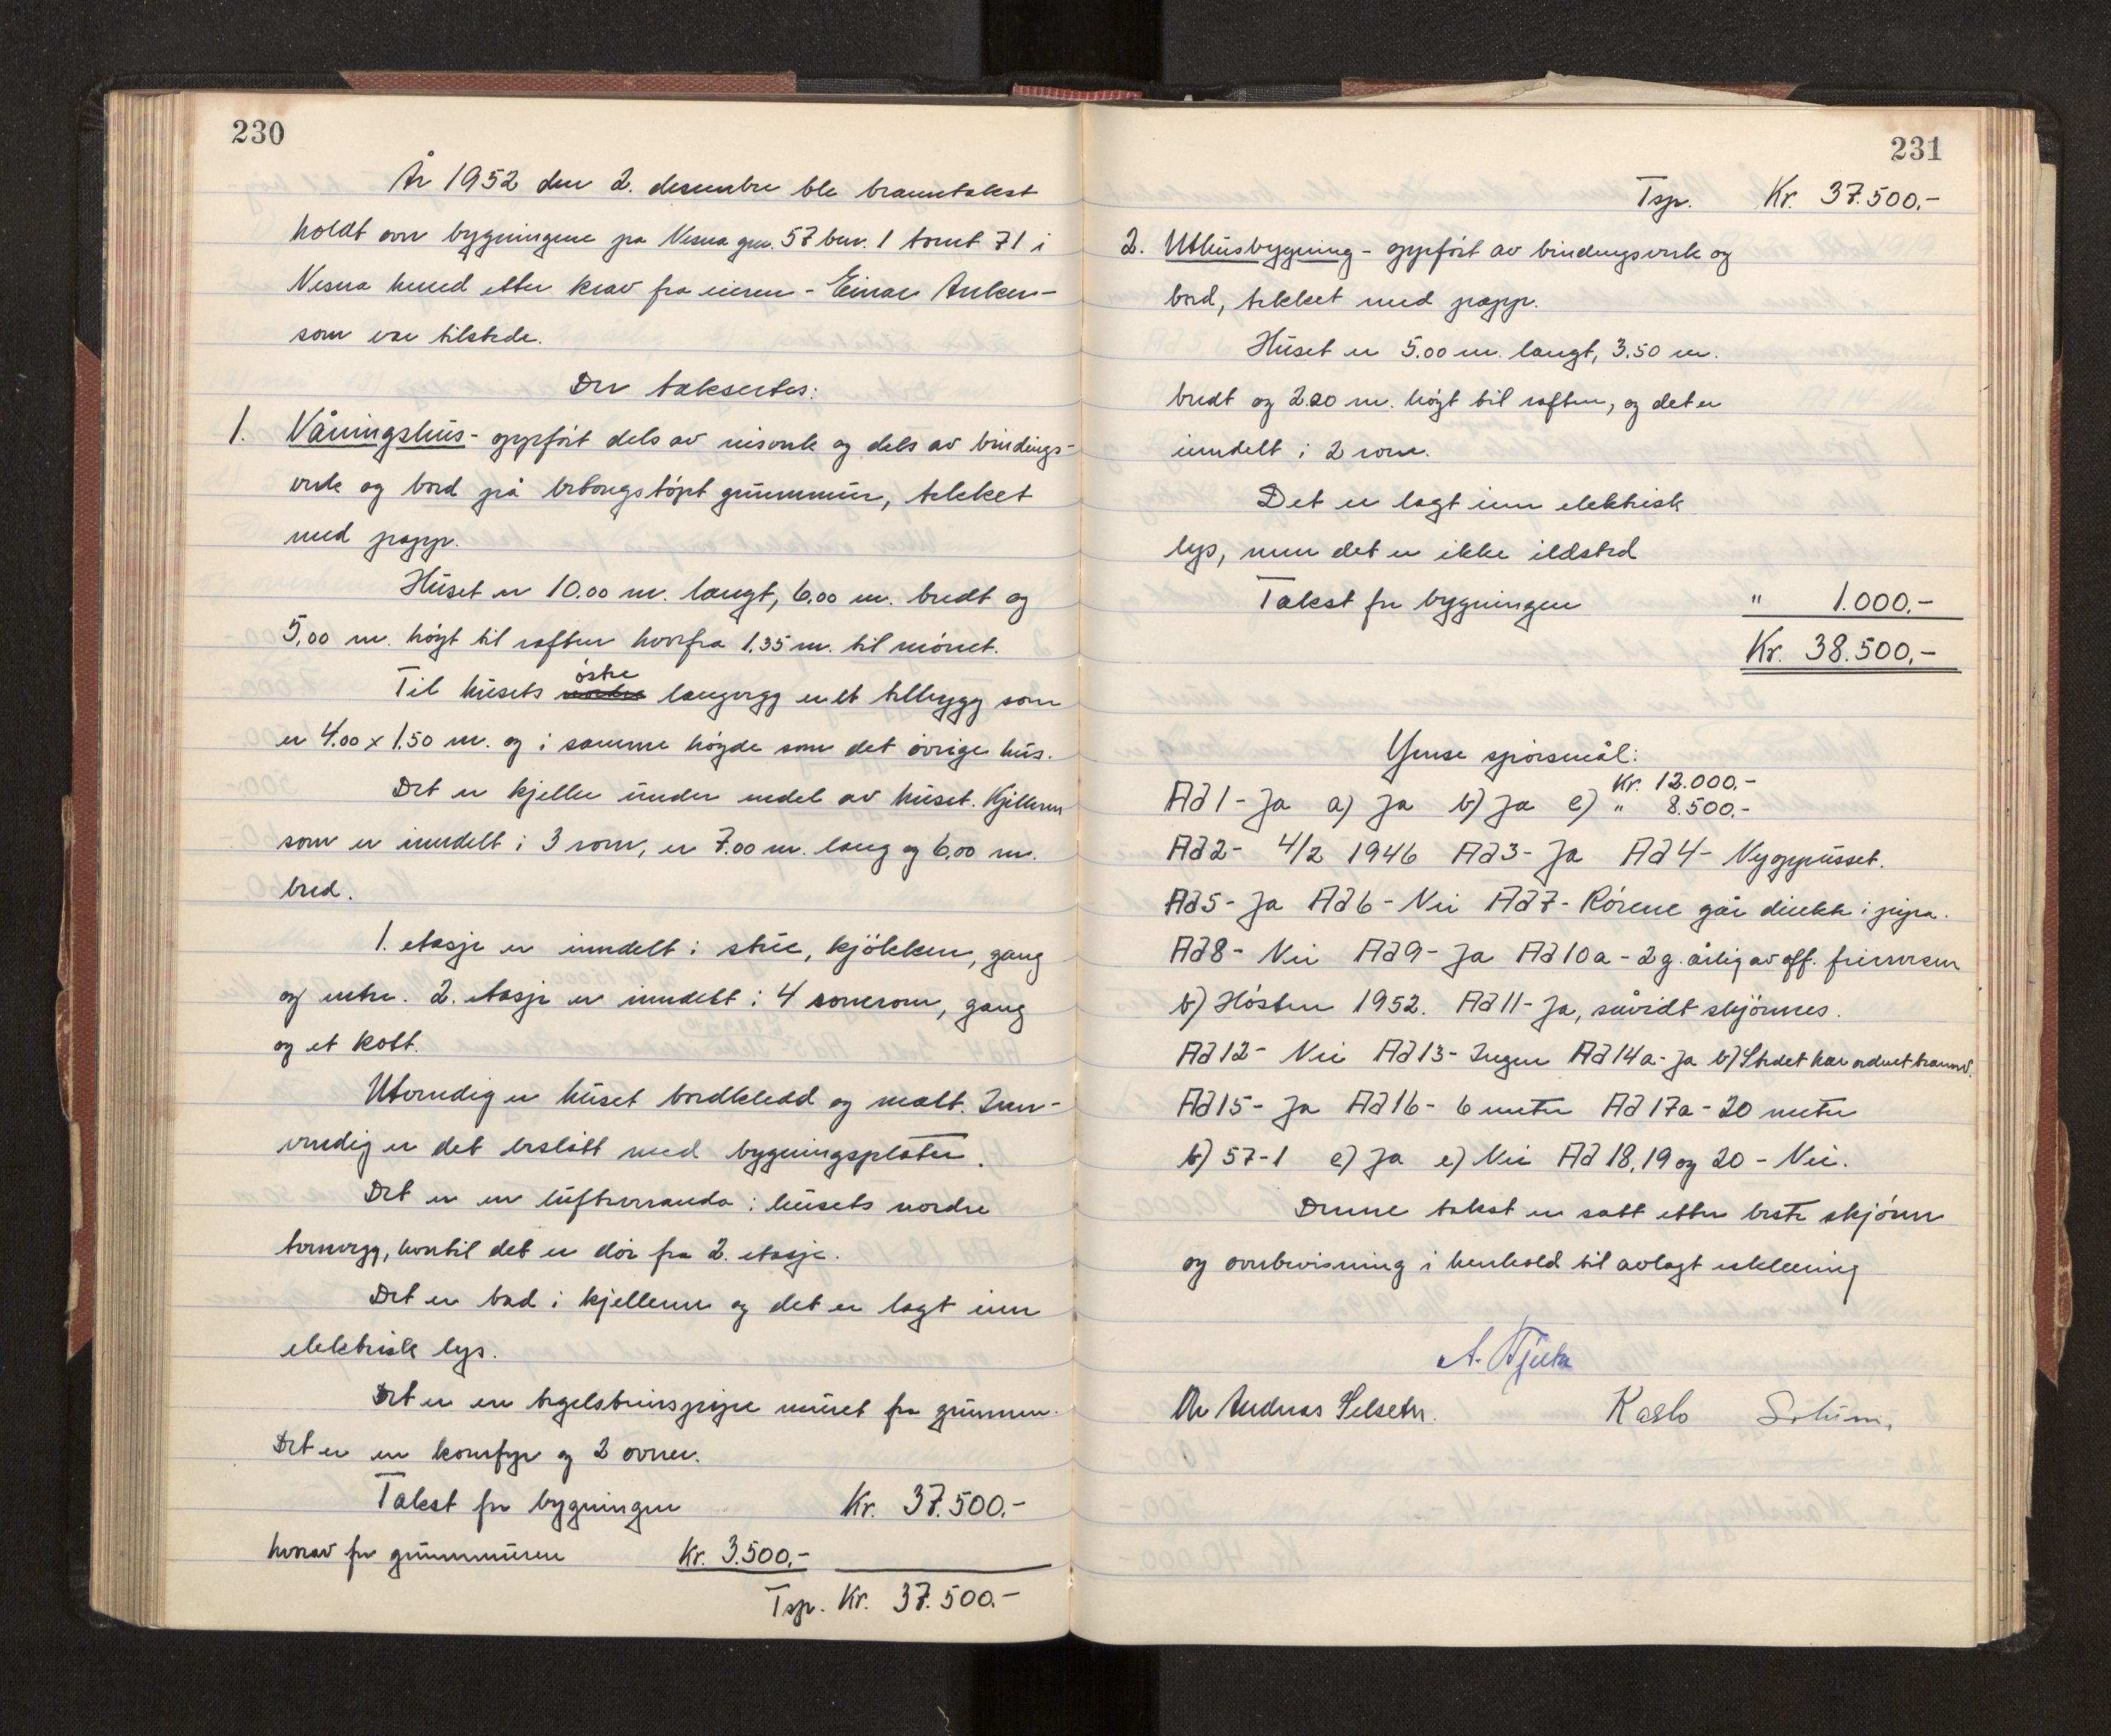 230
År 1952 den 2. desember ble branntakst
holdt over bygningene på Nesna gnr. 57 bnr. 1 tomt 71 i
Nesna herred etter krav fra eieren - Einar Anker -
som var tilstede.
Der takseertes:
1. Våningshus - oppført dels av reisverk og dels av bindings-
verk og bord på betongstøpt grunnmur, tekket
med papp.
Huset er 10.00 m. langt, 6,00 m. bredt og
5,00 m. høgt til raften hvorfra 1.35 m. til mønet.
østre
Til husets nordre langvegg er et tilbygg som
er 4.00 x 1.50 m. og i samme høgde som det øvrige hus.
Det er kjeller under endel av huset. Kjelleren
som er inndelt i 3 rom, er 7.00 m. lang og 6,00 m.
bred.
1. etasje er inndelt i stue, kjøkken, gang
og entre. 2. etasje er inndelt i 4 soverom, gang
og et kott.
Utvendig er huset bordkledd og malt. Inn-
vendig er det beslått med bygningsplater.
Det er en luftveranda i husets nordre
tverrvegg, hvortil det er dør fra 2. etasje.
Det er bad i kjelleren og det er lagt inn
elektrisk lys.
Det er en teglstenspipe muret fra grunnen.
Det er en komfyr og 2 ovner.
Takst for bygningen Kr. 37.500.-
hvorav for grunnmuren Kr. 3.500,-
Tsp. Kr. 37.500.-
231
Tsp. Kr. 37.500,-
2. Uthusbygning - oppført av bindingsverk og
bord, tekket med papp.
Huset er 5.00 m. langt, 3.50 m.
bredt og 2.20 m. høgt til raften, og det er
inndelt i 2 rom.
Det er lagt inn elektrisk
lys, men det er ikke ildsted
Takst for bygningen " 1.000.-
Kr. 38.500,-
Ymse spørsmål:
Kr. 12.000.-
Ad 1 - Ja a) Ja b) Ja c) " 8.500.-
Ad 2 - 4/2 1946 Ad 3 - Ja Ad 4 - Nyoppusset.
Ad 5 - Ja Ad 6 - Nei Ad 7 - Rørene går direkte i pipa.
Ad 8 - Nei Ad 9 - Ja Ad 10a - 2 g. årlig av off. feiervesen
b) Høsten 1952. Ad 11 - Ja, såvidt skjønnes.
Ad 12 - Nei Ad 13 - Ingen Ad 14a - Ja b) Stedet har ordnet brannv.
Ad 15 - Ja Ad 16 - 6 meter Ad 17a - 20 meter
b) 57-1 c) Ja e) Nei Ad 18, 19 og 20 - Nei.
Denne takst er satt etter beste skjønn
og overbevisning i henhold til avlagt erklæring
A.
Andreas Selseter. Karlo